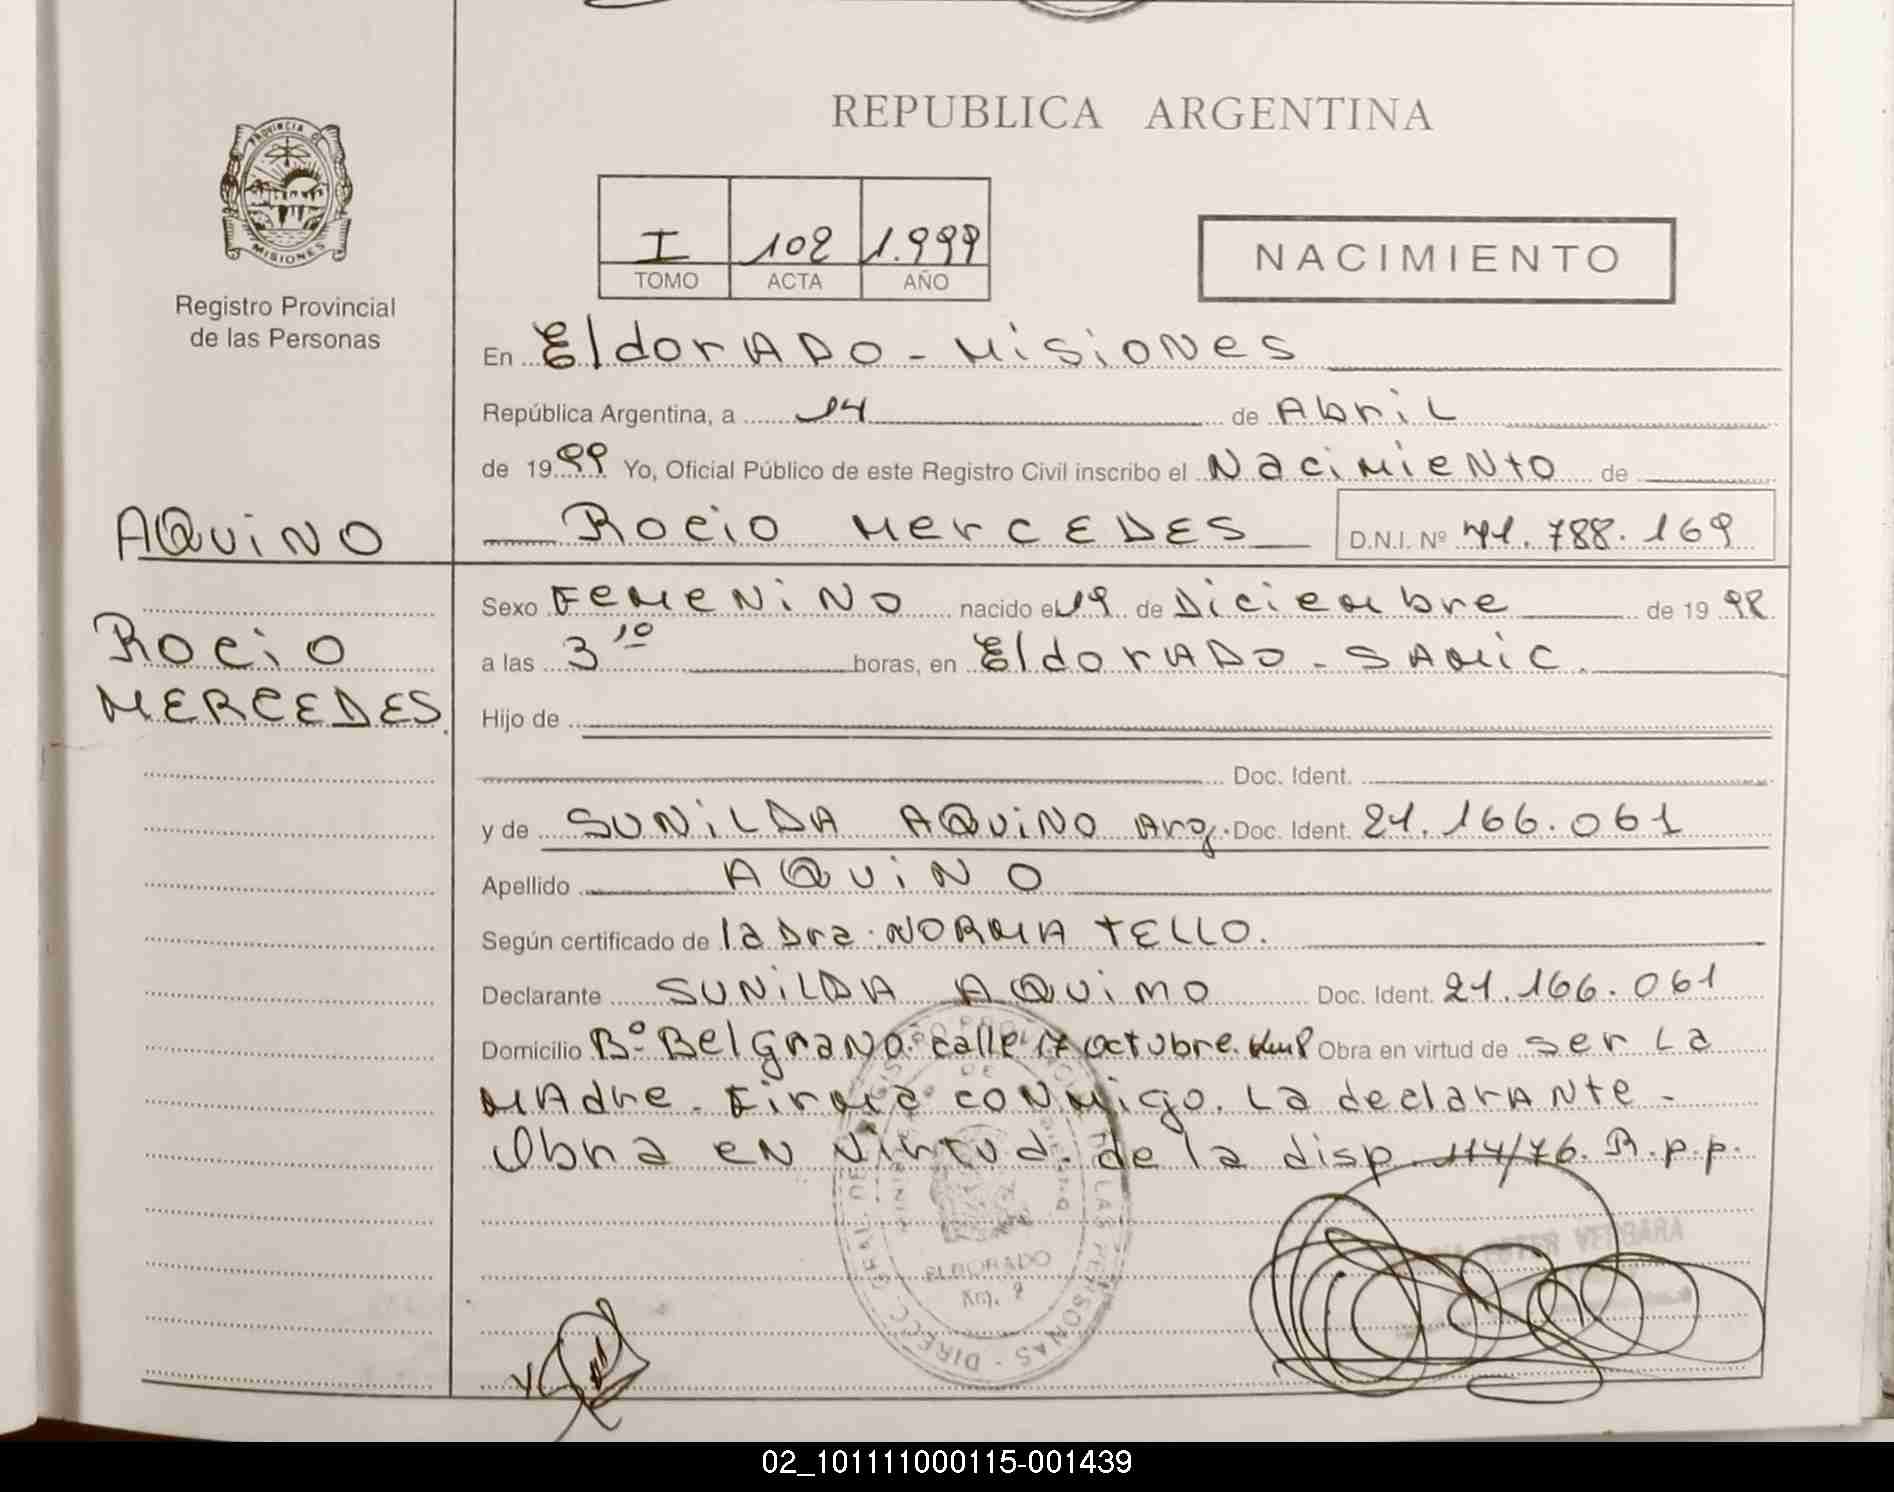 REPUBLICA ARGENTINA
PROVINCIA DE
MISIONES
Registro Provincial
de las Personas
I 102 1.999
TOMO ACTA AÑO
NACIMIENTO
En EldorADO - MisiONes
República Argentina, a 14 de Abril
de 1999 Yo, Oficial Público de este Registro Civil inscribo el NacimieNto de
AQuiNO
Rocio MercEDES D.N.I. Nº 41.788.169
Rocio
MERCEDES.
Sexo FemeNiNO nacido el 19 de Diciembre de 19 98
a las 3 10 horas, en EldorADO - SAMic.
Hijo de
Doc. Ident.
y de SUNiLDA AQuiNO Arg. Doc. Ident. 21.166.061
Apellido AQuiNO
Según certificado de la Dra. NORMA TELLO.
Declarante SUNiLDA AQuiMO Doc. Ident. 21.166.061
Domicilio Bº BelgraNO. calle 17 octubre. Km 8 Obra en virtud de ser La
MAdre. Firma coNMigo. La declarANte -
Obra eN virtud. de la disp. 114/76. R.p.p.
ELDORADO
Km. 9
02_101111000115-001439